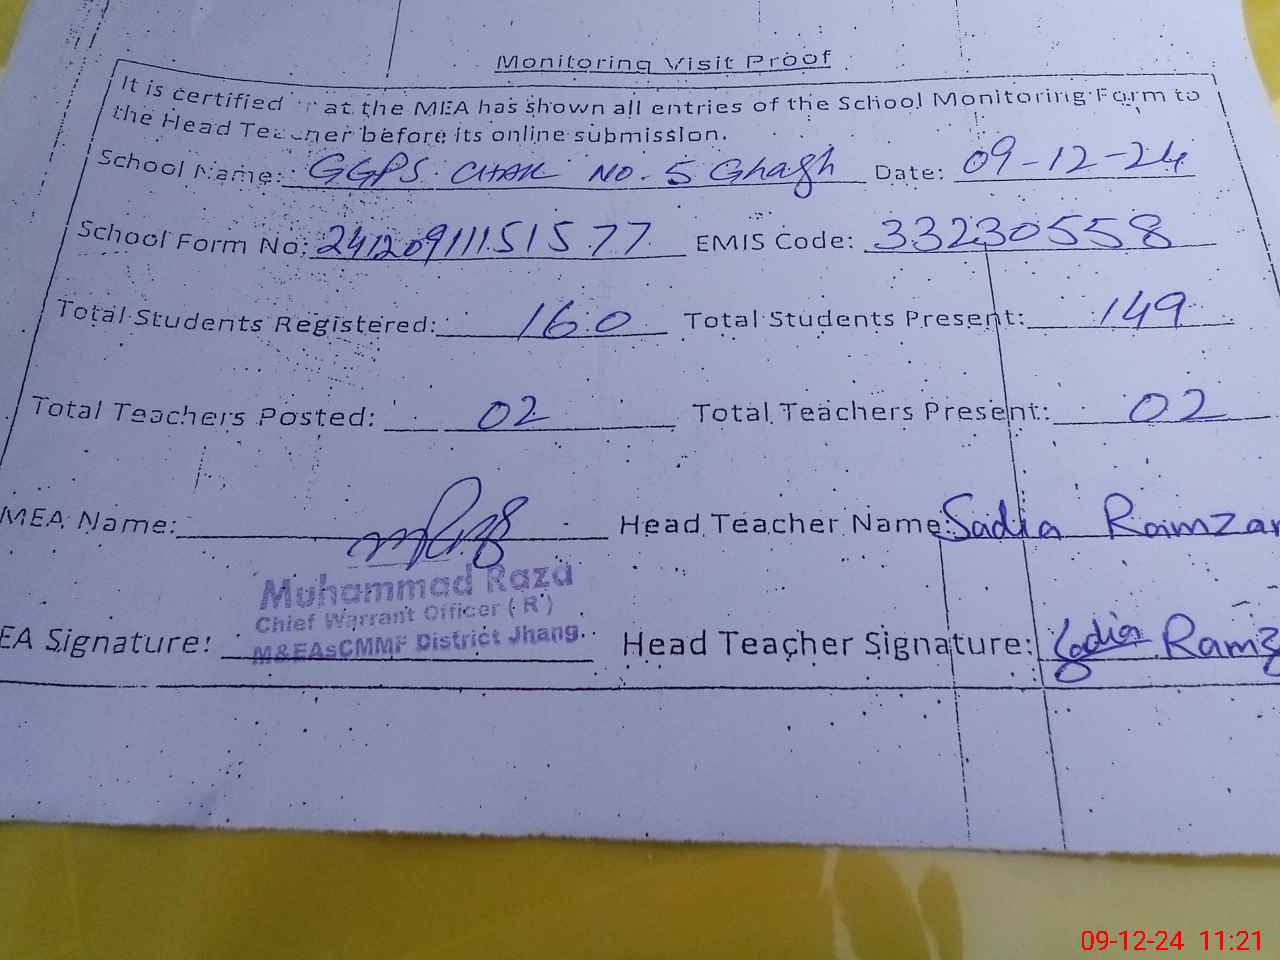 Monitoring Visit Proof
It is certified at the MEA has shown all entries of the School Monitoring Form to
the Head Teacher before its online submission.
School Name: GGPS. CHAK NO. 5 Ghagh Date: 09-12-24
School Form No: 24120911151577 EMIS Code: 33230558
Total Students Registered: 160 Total Students Present: 149
Total Teachers Posted: 02 Total Teachers Present: 02
MEA Name: Head Teacher Name: Sadia Ramzan
Muhammad Raza
Chief Warrant Officer (R)
EA Signature: M&EAsCMMF District Jhang. Head Teacher Signature: Sadia Ramz
09-12-24 11:21